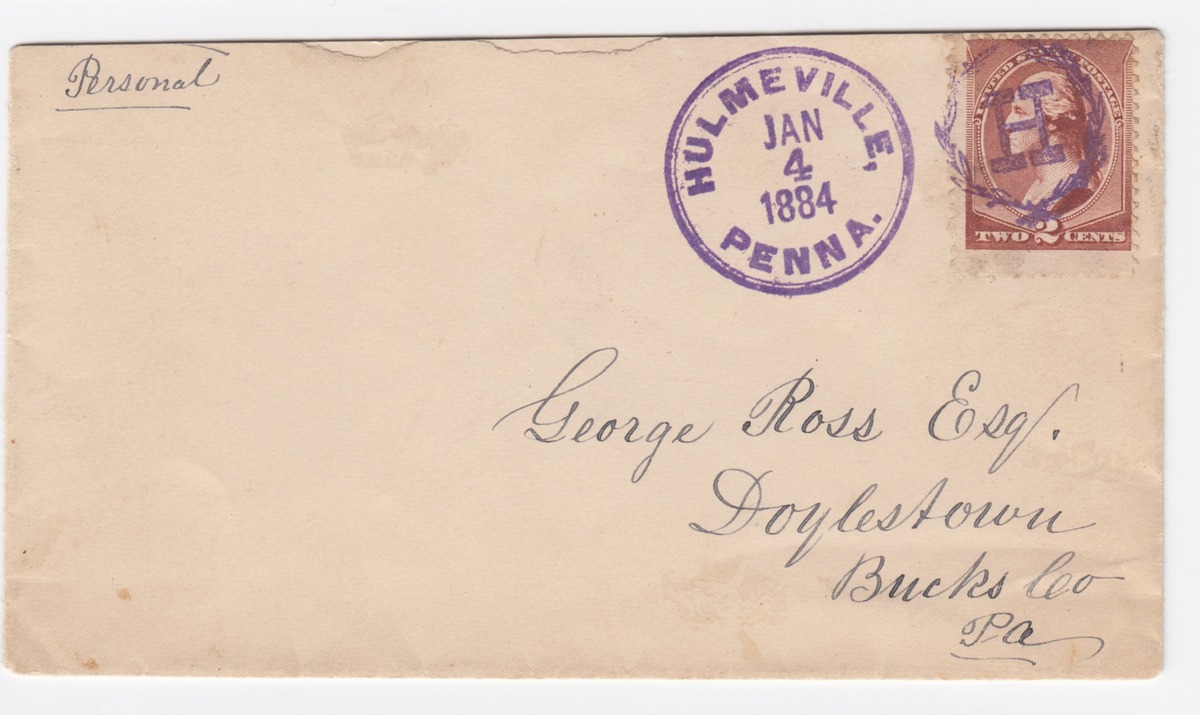 Personal
HULMEVILLE,
JAN
4
1884
PENNA.
UNITED STATES POSTAGE
H
TWO 2 CENTS
George Ross Esq.
Doylestown
Bucks Co
Pa